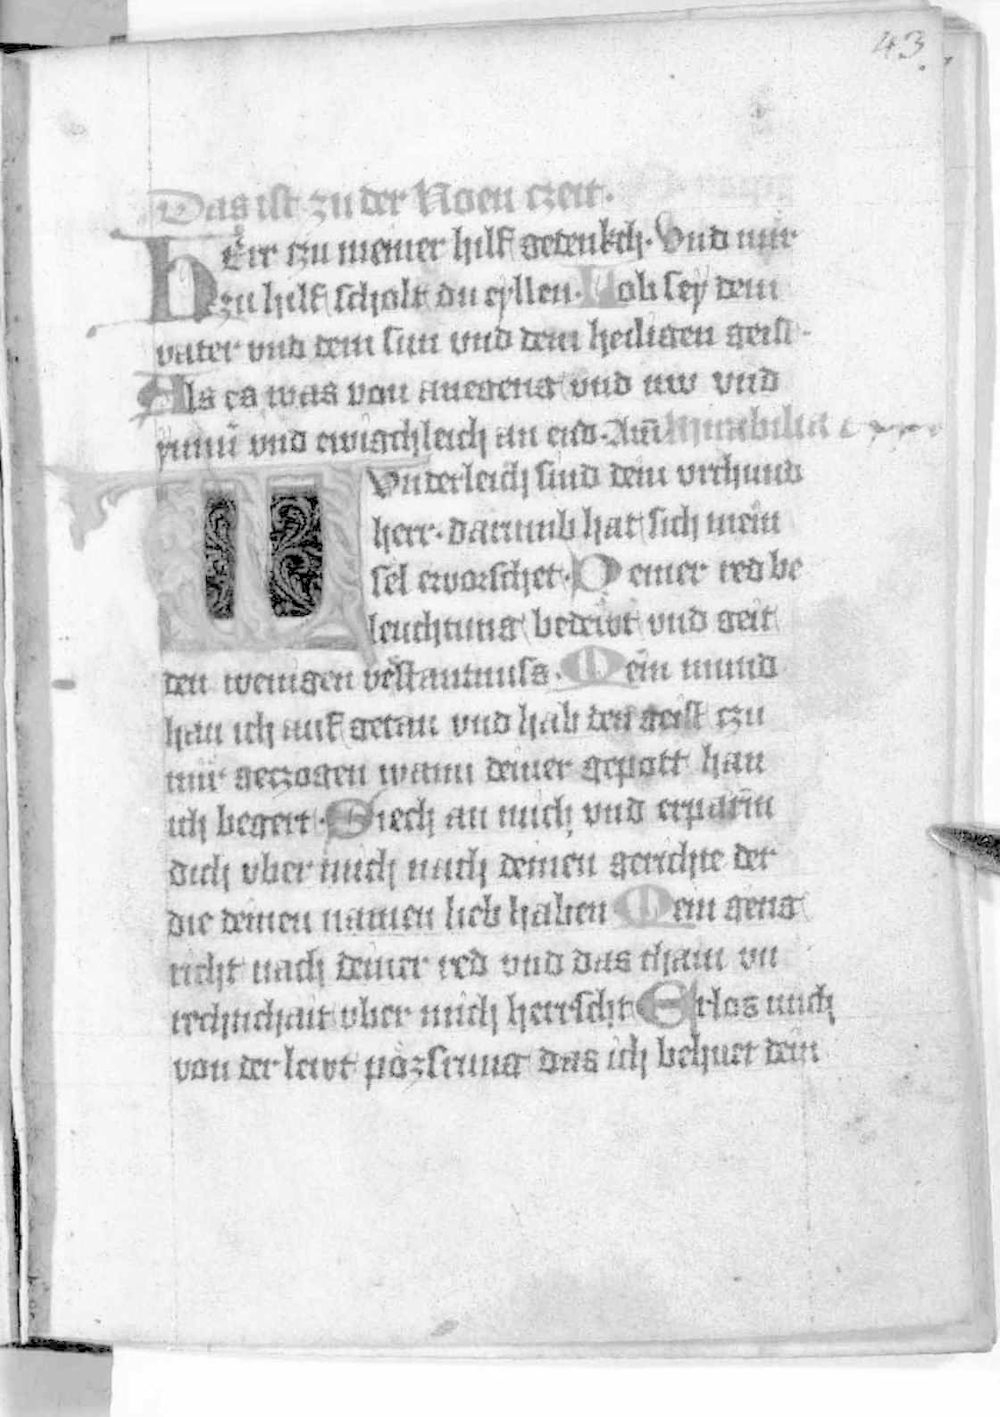 43.
Das ist zu der Noen czeit.
hErr czu meiner hilf gedenkch. Und mir
zu hilf scholt du eyllen. Lob sey dem
vater vnd dem sun vnd dem heiligen geist.
Als es was von anegeng vnd nw vnd
ymm̄ vnd ewigchleich an end. Am̄ Mirabilia
Wunderleich sind dein vrchund
herr. darumb hat sich mein
sel ervorschet. Deiner red be
leuchtung bedewt vnd geit
den wenigen v̄stantnuss. Mein mund
han ich auf getan vnd hab den geist czu
mir geczogen wann deiner gepott han
ich begert. Siech an mich vnd erparm
dich vber mich nach deinen gerichte der
die deinen namen lieb haben Mein geng
richt nach deiner red vnd das chain vn
rechtichait vber mich herrscht Erlos mich
von der lewt pözsrung das ich behuet dein